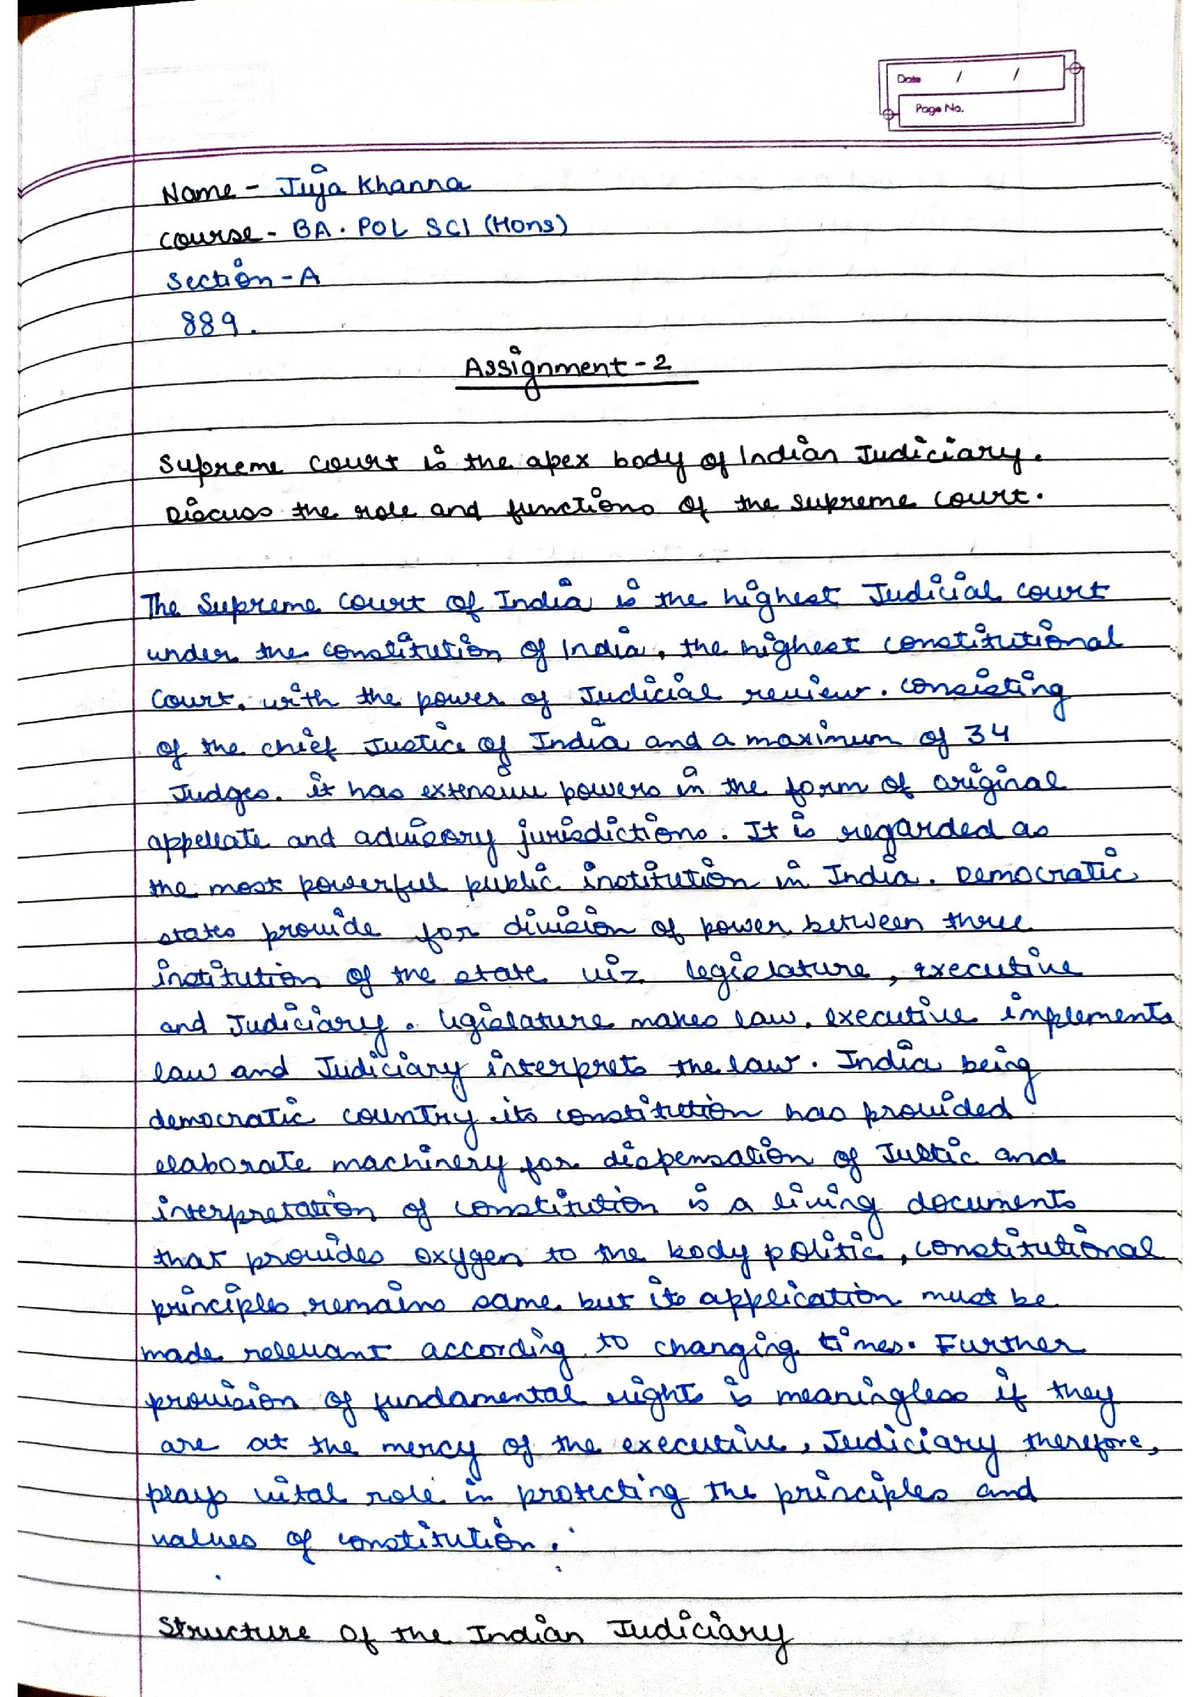 Date / /
Page No.
Name - Jiya Khanna
Course - BA. POL SCI (Hons)
Section - A
889.
Assignment - 2
Supreme Court is the apex body of Indian Judiciary.
Discuss the role and functions of the supreme court.
The Supreme court of India is the highest Judicial court
under the constitution of India, the highest constitutional
Court, with the power of Judicial review. consisting
of the chief Justice of India and a maximum of 34
Judges. it has extensive powers in the form of original
appellate and advisory jurisdictions. It is regarded as
the most powerful public institution in India. Democratic
states provide for division of power between three
institution of the state viz legislature, executive
and Judiciary. legislature makes law, executive implements
law and Judiciary interprets the law. India being
democratic country its constitution has provided
elaborate machinery for dispensation of Justic and
interpretation of constitution is a living documents
that provides oxygen to the body politic, constitutional
principles remains same but its application must be
made relevant according to changing times. Further
provision of fundamental rights is meaningless if they
are at the mercy of the executive, Judiciary therefore,
plays vital role in protecting the principles and
values of constitution.
Structure Of the Indian Judiciary